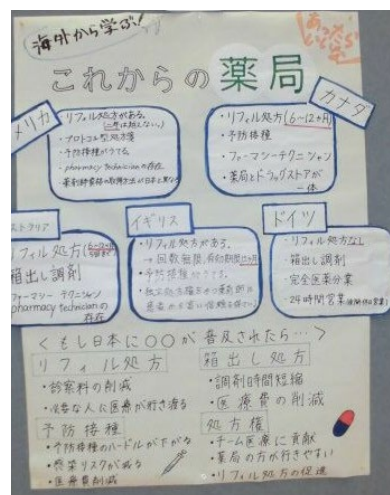 海外から学ぶ!
あったらいいな
これからの薬局
アメリカ
・リフィル処方がある。
・プロトコル型処方箋
・予防接種がうてる。
・pharmacy technicianの存在
カナダ
・リフィル処方(6~12ヵ月)
・予防接種
・ファーマシーテクニシャン
・薬局とドラッグストアが
一体
ストラリア
リフィル処方
箱出し調剤
ファーマシー テクニシャン
pharmacy technicianの
存在
イギリス
・リフィル処方がある。
→回数無限,有効期間12ヵ月
・予防接種がうてる。
ドイツ
・リフィル処方なし
・箱出し調剤
・完全医薬分業
・24時間営業
<もし日本に○○が普及されたら…>
リフィル処方
・診察料の削減
・必要な人に医療が行き渡る
予防接種
・予防接種のハードルが下がる
・感染リスクが減る
・医療費削減
箱出し処方
・調剤時間短縮
・医療費の削減
処方権
・チーム医療に貢献
・薬局の方が行きやすい
・リフィル処方の促進